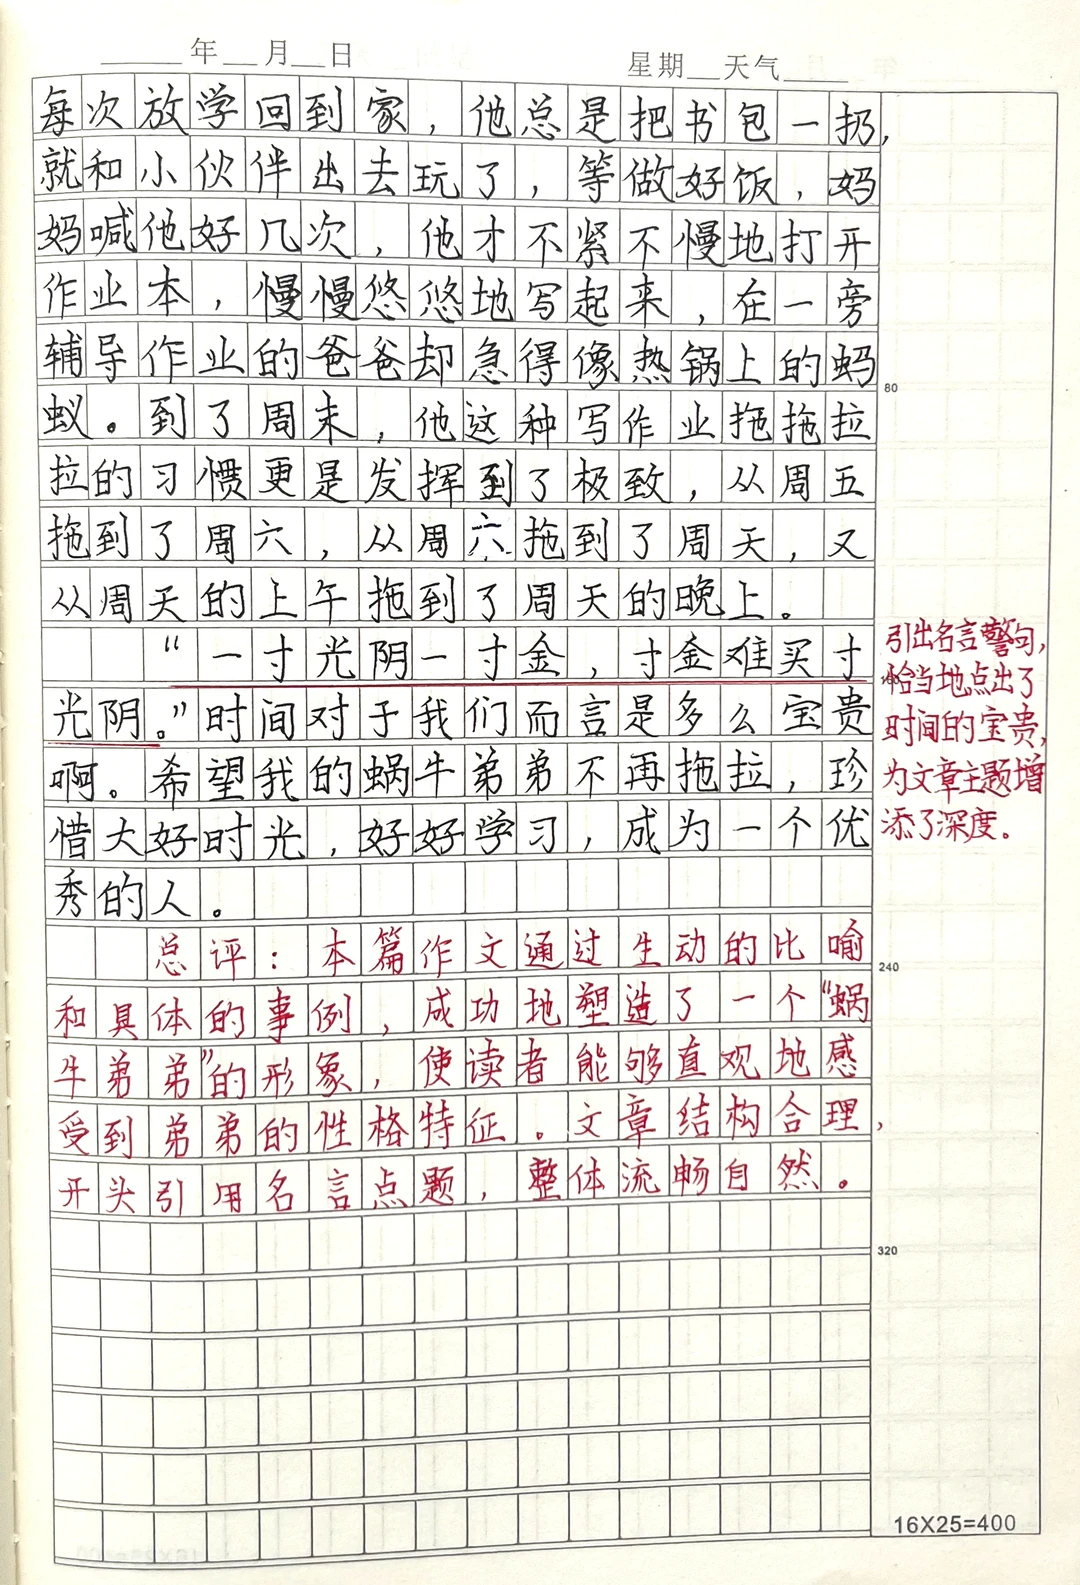 年 月 日 星期 天气
每次放学回到家，他总是把书包一扔，
就和小伙伴出去玩了，等做好饭，妈
妈喊他好几次，他才不紧不慢地打开
作业本，慢慢悠悠地写起来，在一旁
辅导作业的爸爸却急得像热锅上的蚂
80
蚁。到了周末，他这种写作业拖拖拉
拉的习惯更是发挥到了极致，从周五
拖到了周六，从周六拖到了周天，又
从周天的上午拖到了周天的晚上。
“一寸光阴一寸金，寸金难买寸
光阴。”时间对于我们而言是多么宝贵
啊。希望我的蜗牛弟弟不再拖拉，珍
惜大好时光，好好学习，成为一个优
秀的人。
引出名言警句，
恰当地点出了
时间的宝贵，
为文章主题增
添了深度。
总评：本篇作文通过生动的比喻
240
和具体的事例，成功地塑造了一个“蜗
牛弟弟”的形象，使读者能够直观地感
受到弟弟的性格特征。文章结构合理，
开头引用名言点题，整体流畅自然。
320
16X25=400